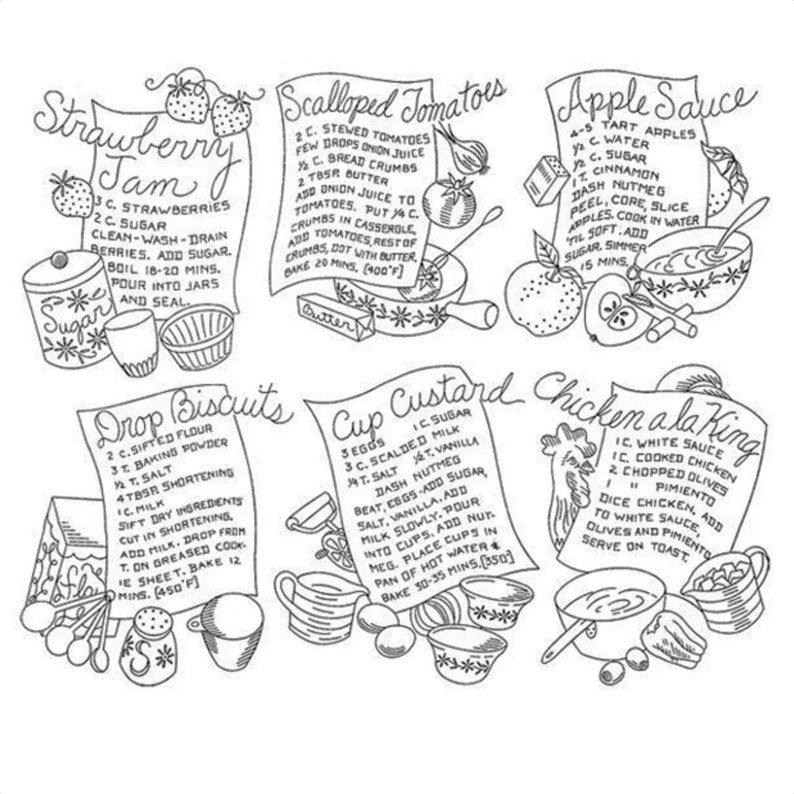 Strawberry
Jam
3 C. STRAWBERRIES
2 C. SUGAR
CLEAN-WASH-DRAIN
BERRIES. ADD SUGAR.
BOIL 18-20 MINS.
POUR INTO JARS
AND SEAL.
Sugar
Scalloped Tomatoes
2 C. STEWED TOMATOES
FEW DROPS ONION JUICE
½ C. BREAD CRUMBS
2 TBSP. BUTTER
ADD ONION JUICE TO
TOMATOES. PUT ¼ C.
CRUMBS IN CASSEROLE,
ADD TOMATOES, REST OF
CRUMBS, DOT WITH BUTTER.
BAKE 20 MINS. [400°F]
Butter
Apple Sauce
4-5 TART APPLES
½ C. WATER
½ C. SUGAR
1 T. CINNAMON
DASH NUTMEG
PEEL, CORE, SLICE
APPLES. COOK IN WATER
'TIL SOFT. ADD
SUGAR. SIMMER
15 MINS.
Drop Biscuits
2 C. SIFTED FLOUR
3 T. BAKING POWDER
½ T. SALT
4 TBSP. SHORTENING
1 C. MILK
SIFT DRY INGREDIENTS
CUT IN SHORTENING.
ADD MILK. DROP FROM
T. ON GREASED COOK-
IE SHEET. BAKE 12
MINS. [450°F]
S
Cup Custard
3 EGGS 1 C. SUGAR
3 C. SCALDED MILK
¼ T. SALT ½ T. VANILLA
DASH NUTMEG
BEAT, EGGS-ADD SUGAR,
SALT, VANILLA. ADD
MILK SLOWLY. POUR
INTO CUPS. ADD NUT-
MEG. PLACE CUPS IN
PAN OF HOT WATER &
BAKE 30-35 MINS. [350]
Chicken a la King
1 C. WHITE SAUCE
1 C. COOKED CHICKEN
2 CHOPPED OLIVES
1 " PIMIENTO
DICE CHICKEN. ADD
TO WHITE SAUCE,
OLIVES AND PIMIENTO.
SERVE ON TOAST.